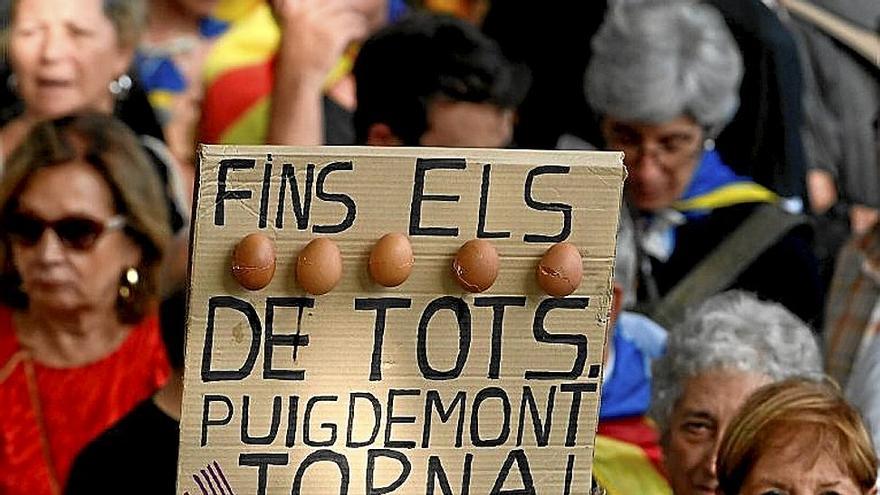 FINS ELS
DE TOTS.
PUIGDEMONT
TORNA!